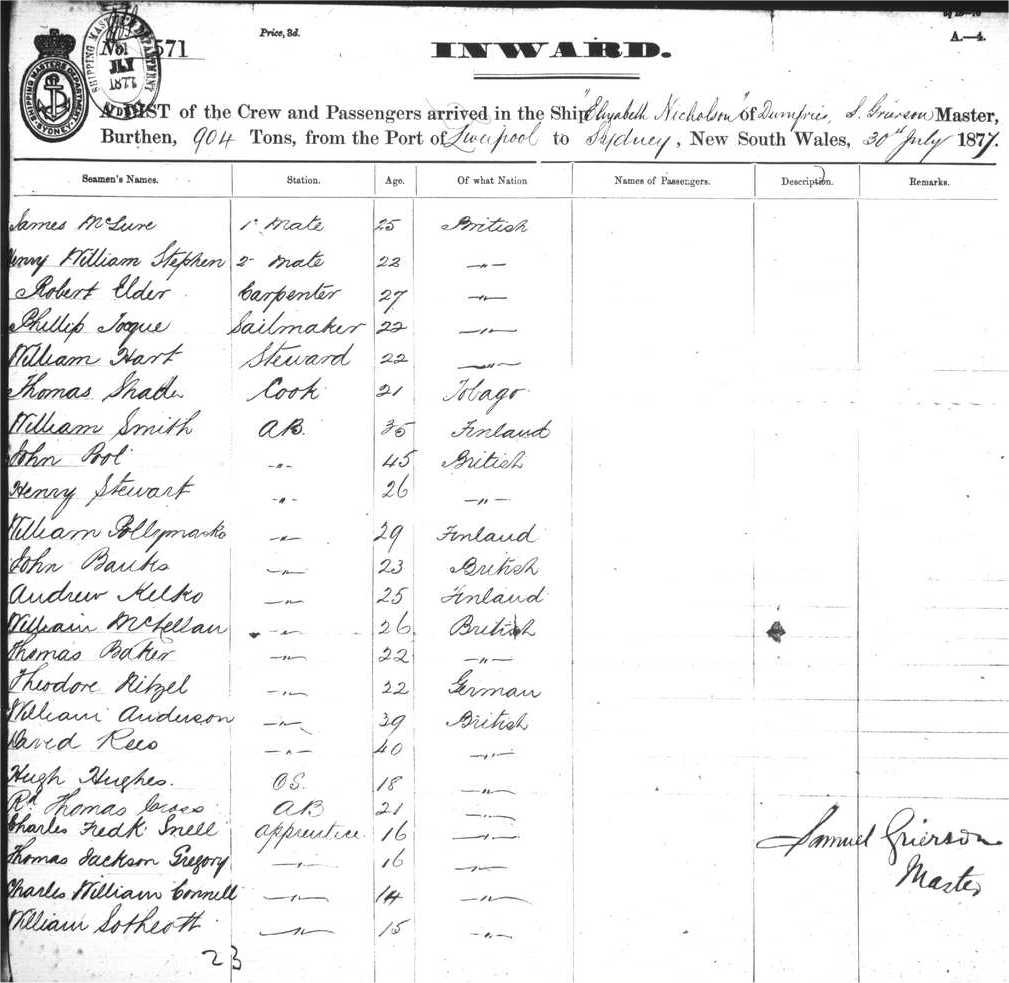 of 15-76
A.—4.
Price, 3d.
No. 571
SHIPPING MASTER'S DEPARTMENT SYDNEY
SHIPPING MASTER'S DEPARTMENT
JLY
1877
SYDNEY
INWARD.
A LIST of the Crew and Passengers arrived in the Ship "Elizabeth Nicholson" of Dumfries, S. Grierson Master,
Burthen, 904 Tons, from the Port of Liverpool to Sydney, New South Wales, 30th July 1877.
Seamen's Names. Station. Age. Of what Nation Names of Passengers. Description. Remarks.
James McLure 1st Mate 25 British
Henry William Stephen 2nd Mate 22 —"—
Robert Elder Carpenter 27 —"—
Phillip Toque Sailmaker 22 —"—
William Hart Steward 22 —"—
Thomas Cook 21 Tobago
William Smith AB. 35 Finland
John Pool —"— 45 British
Henry Stewart —"— 26 —"—
William —"— 29 Finland
John Banks —"— 23 British
Andrew Kelko —"— 25 Finland
William McKellan —"— 26 British
Thomas Baker —"— 22 —"—
Theodore Ritzel —"— 22 German
William Anderson —"— 39 British
David Rees —"— 40 —"—
Hugh Hughes. OS. 18 —"—
Rd Thomas Cross AB 21 —"—
Charles Fredk. Snell apprentice 16 —"—
Thomas Jackson Gregory —"— 16 —"—
Charles William Connell —"— 14 —"—
William Sotheott —"— 15 —"—
23
Samuel Grierson
Master